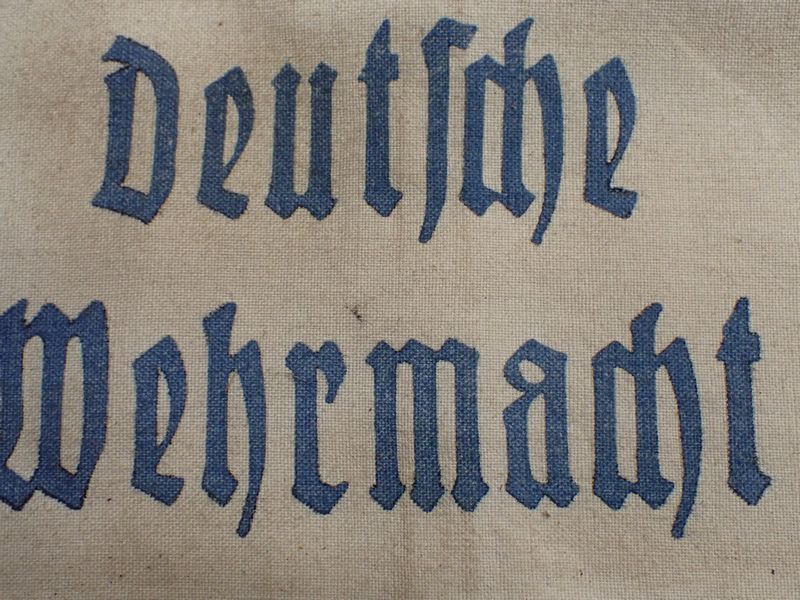 Deutſche
Wehrmacht